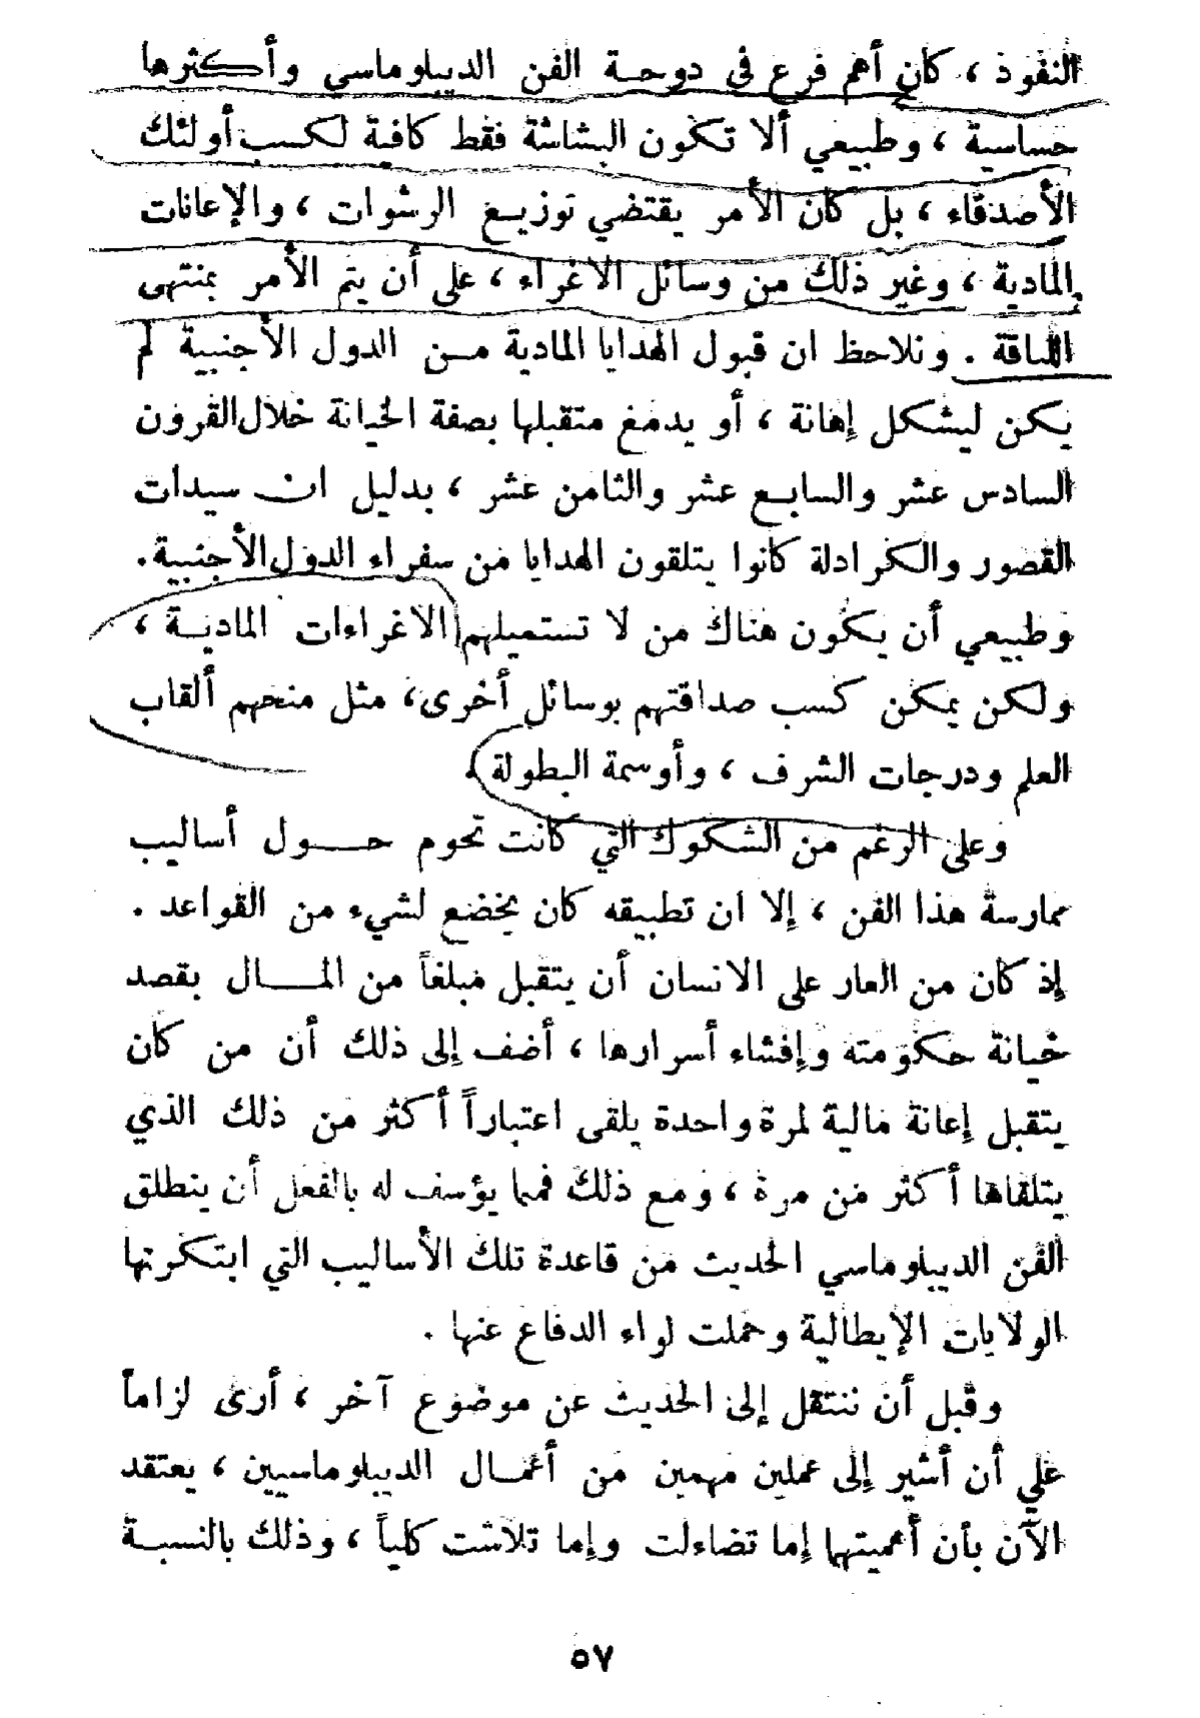 النفوذ ، كان أهم فرع في دوحة الفن الديبلوماسي وأكثرها
حساسية ، وطبيعي ألا تكون البشاشة فقط كافية لكسب أولئك
الأصدقاء ، بل كان الأمر يقتضي توزيع الرشوات ، والإعانات
المادية ، وغير ذلك من وسائل الاغراء ، على أن يتم الأمر بمنتهى
اللباقة . ونلاحظ ان قبول الهدايا المادية من الدول الأجنبية لم
يكن ليشكل إهانة ، أو يدمغ متقبلها بصفة الخيانة خلال القرون
السادس عشر والسابع عشر والثامن عشر ، بدليل ان سيدات
القصور والكرادلة كانوا يتلقون الهدايا من سفراء الدول الأجنبية .
وطبيعي أن يكون هناك من لا تستميلهم الاغراءات المادية ،
ولكن يمكن كسب صداقتهم بوسائل أخرى، مثل منحهم ألقاب
العلم ودرجات الشرف ، وأوسمة البطولة .
وعلى الرغم من الشكوك التي كانت تحوم حول أساليب
ممارسة هذا الفن ، إلا ان تطبيقه كان يخضع لشيء من القواعد .
إذ كان من العار على الانسان أن يتقبل مبلغاً من المال بقصد
خيانة حكومته وإفشاء أسرارها ، أضف إلى ذلك أن من كان
يتقبل إعانة مالية لمرة واحدة يلقى اعتباراً أكثر من ذلك الذي
يتلقاها أكثر من مرة ، ومع ذلك فمما يؤسف له بالفعل أن ينطلق
الفن الديبلوماسي الحديث من قاعدة تلك الأساليب التي ابتكرتها
الولايات الإيطالية وحملت لواء الدفاع عنها .
وقبل أن ننتقل إلى الحديث عن موضوع آخر ، أرى لزاماً
علي أن أشير إلى عملين مهمين من أعمال الديبلوماسيين ، يعتقد
الآن بأن أهميتها إما تضاءلت وإما تلاشت كلياً ، وذلك بالنسبة
٥٧